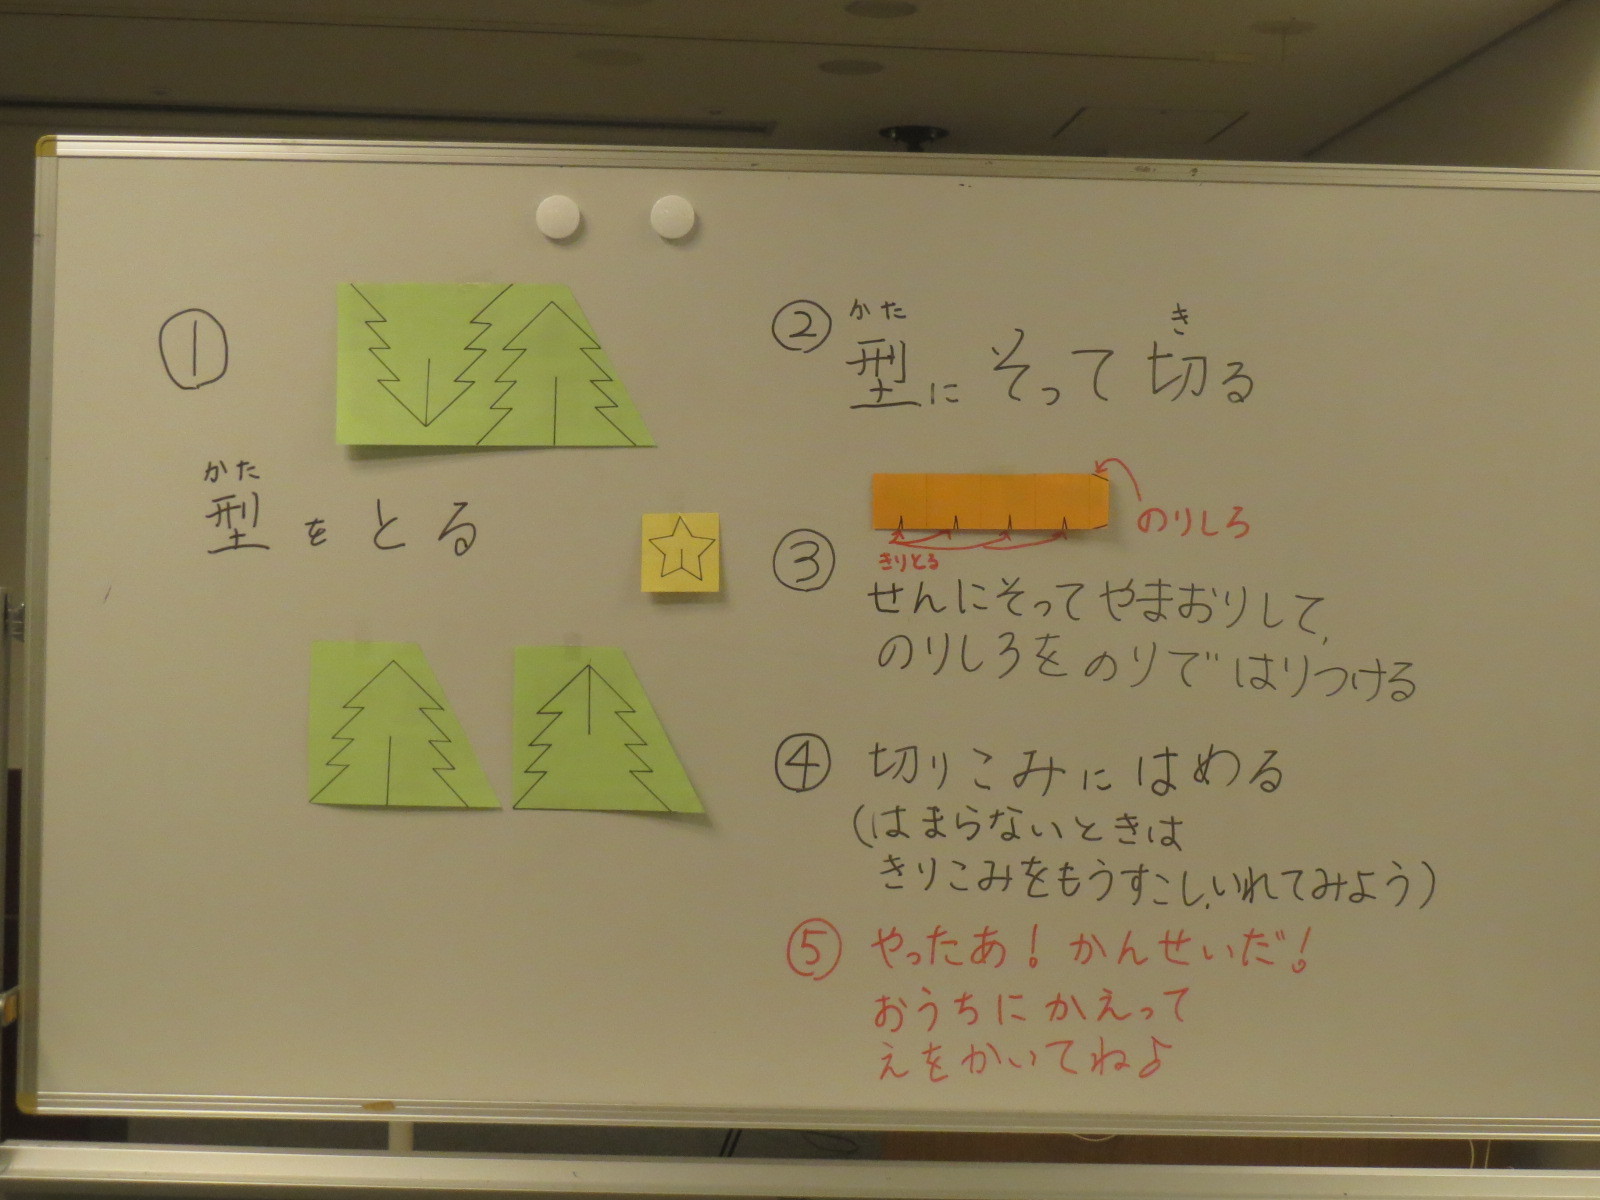 ①
かた
型をとる
かた き
② 型にそって切る
のりしろ
きりとる
③
せんにそってやまおりして、
のりしろをのりではりつける
④ 切りこみにはめる
(はまらないときは
きりこみをもうすこし、いれてみよう)
⑤ やったあ!かんせいだ!
おうちにかえって
えをかいてねよ